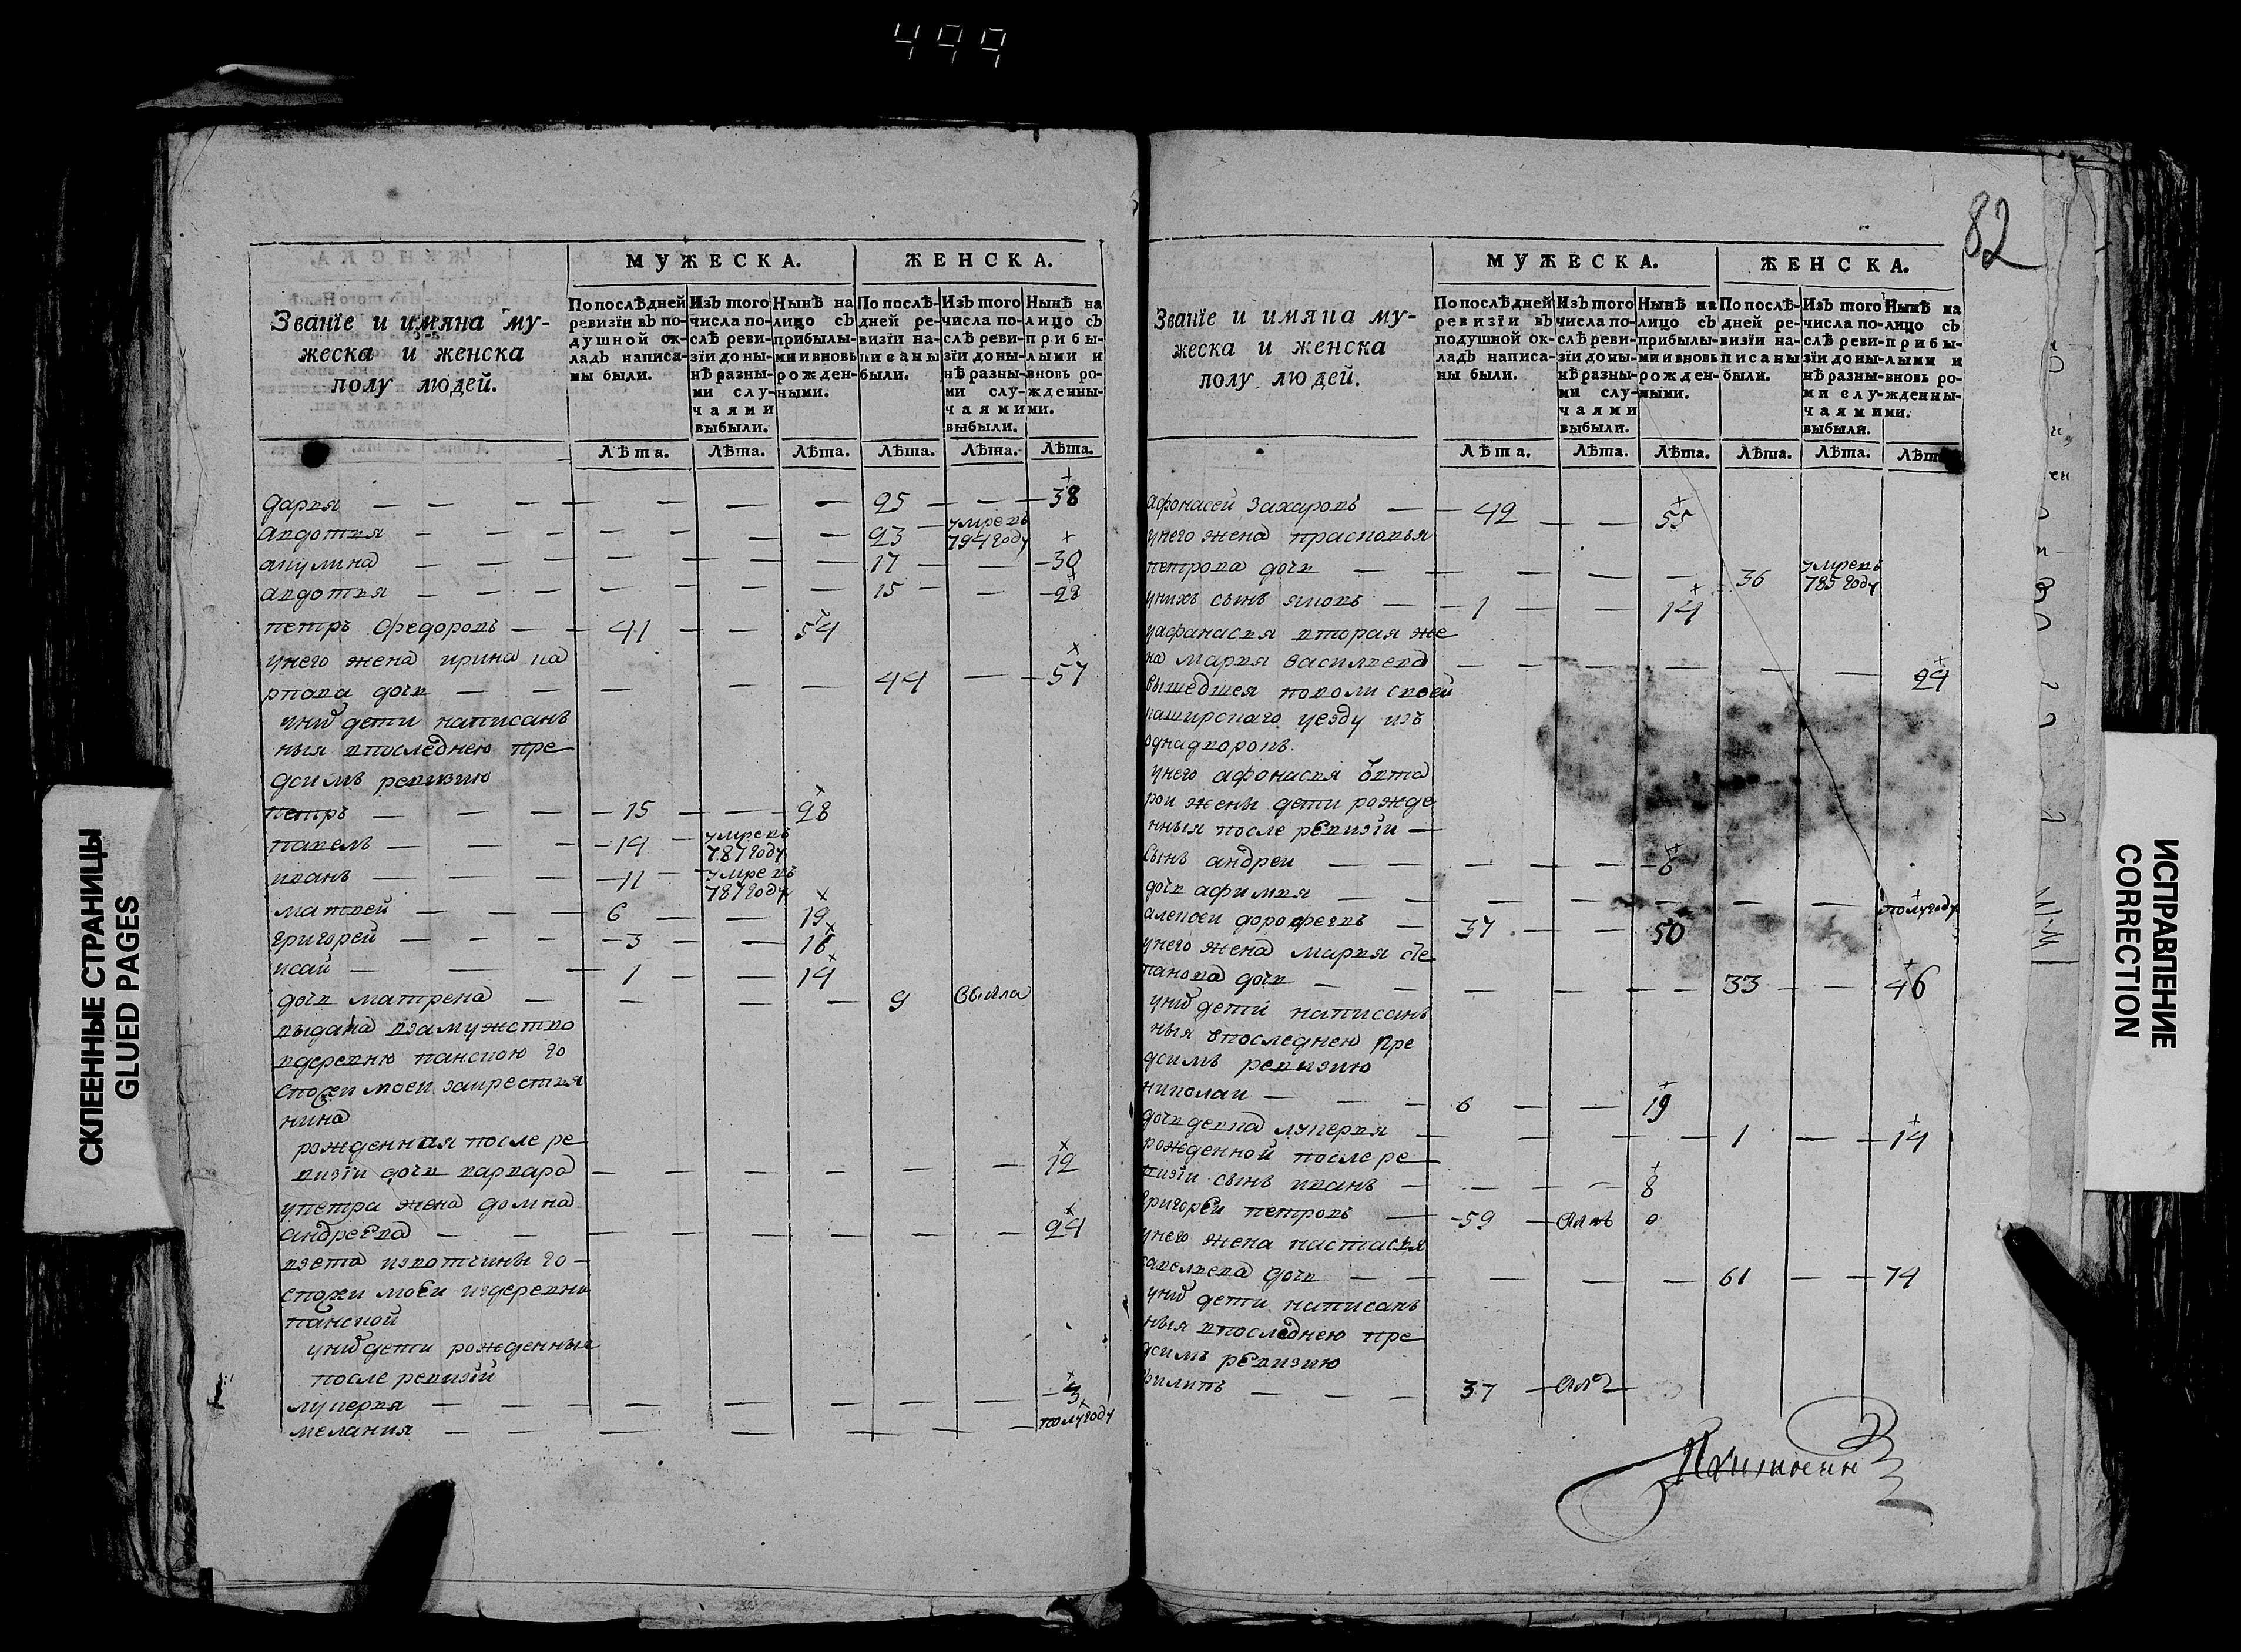 499
82
МУЖЕСКА. ЖЕНСКА.
Званїе и имяна мужеска и женска полу людей.
По послѣдней ревизїи въ подушной окладъ написаны были.
Изъ того числа послѣ ревизїи до нынѣ разными случаями выбыли.
Нынѣ на лицо съ прибылыми и вновь рожденными.
По послѣдней ревизїи написаны были.
Изъ того числа послѣ ревизїи до нынѣ разными случаями выбыли.
Нынѣ на лицо съ прибылыми и вновь рожденными.
Лѣта. Лѣта. Лѣта. Лѣта. Лѣта. Лѣта.
дарья — 25 — 38
авдотья — 23 — умре въ 794 году
акулина — 17 — 30
авдотья — 15 — 28
петръ федоровъ — 41 — 54
унего жена ирина ка
рпова дочь — 44 — 57
унихъ дети написан
ныя впоследнею пре
дсимъ ревизию
петръ — 15 — 28
павелъ — 14 — умре въ 787 году
иванъ — 11 — умре въ 787 году
матвей — 6 — 19
григорей — 3 — 16
исай — 1 — 14
дочь матрена — 9 выдана
выдана взамужство
вдеревню панскою го
спожи моей закрестья
нина
рожденная после ре
визїи дочь варвара — 12
упетра жена домна
андреева — 24
взета извотчины го
спожи моеи издеревни
панской
унихъ дети рожденныя
после ревизїй
лукерья — 3
мелания — полугоду
МУЖЕСКА. ЖЕНСКА.
Званїе и имяна мужеска и женска полу людей.
По послѣдней ревизїи въ подушной окладъ написаны были.
Изъ того числа послѣ ревизїи до нынѣ разными случаями выбыли.
Нынѣ на лицо съ прибылыми и вновь рожденными.
По послѣдней ревизїи написаны были.
Изъ того числа послѣ ревизїи до нынѣ разными случаями выбыли.
Нынѣ на лицо съ прибылыми и вновь рожденными.
Лѣта. Лѣта. Лѣта. Лѣта. Лѣта. Лѣта.
афонасей захаровъ — 42 — 55
унего жена прасковья
петрова дочь — 36 умре въ 785 году
унихъ сынъ яковъ — 1 — 14
уафанасья вторая же
на марья васильева — 24
вышедшея поволи своей
каширскаго уезду изъ
однадворовъ.
унего афонасья ѿвта
рои жены дети рожде
нныя после ревизїи —
сынъ андреи — 6
дочь афимья — полугоду
алексеи дорофеевъ — 37 — 50
унего жена марья сте
панова дочь — 33 — 46
унихъ дети написан
ныя впоследнею пре
дсимъ ревизию
николаи — 6 — 19
дочь девка лукерья — 1 — 14
рожденной после ре
визїи сынъ иванъ — 8
григореи петровъ — 59
унего жена настасья
савельева дочь — 61 — 74
унихъ дети написан
ныя впоследнею пре
дсимъ ревизию
филипъ — 37
СКЛЕЕННЫЕ СТРАНИЦЫ
GLUED PAGES
ИСПРАВЛЕНИЕ
CORRECTION